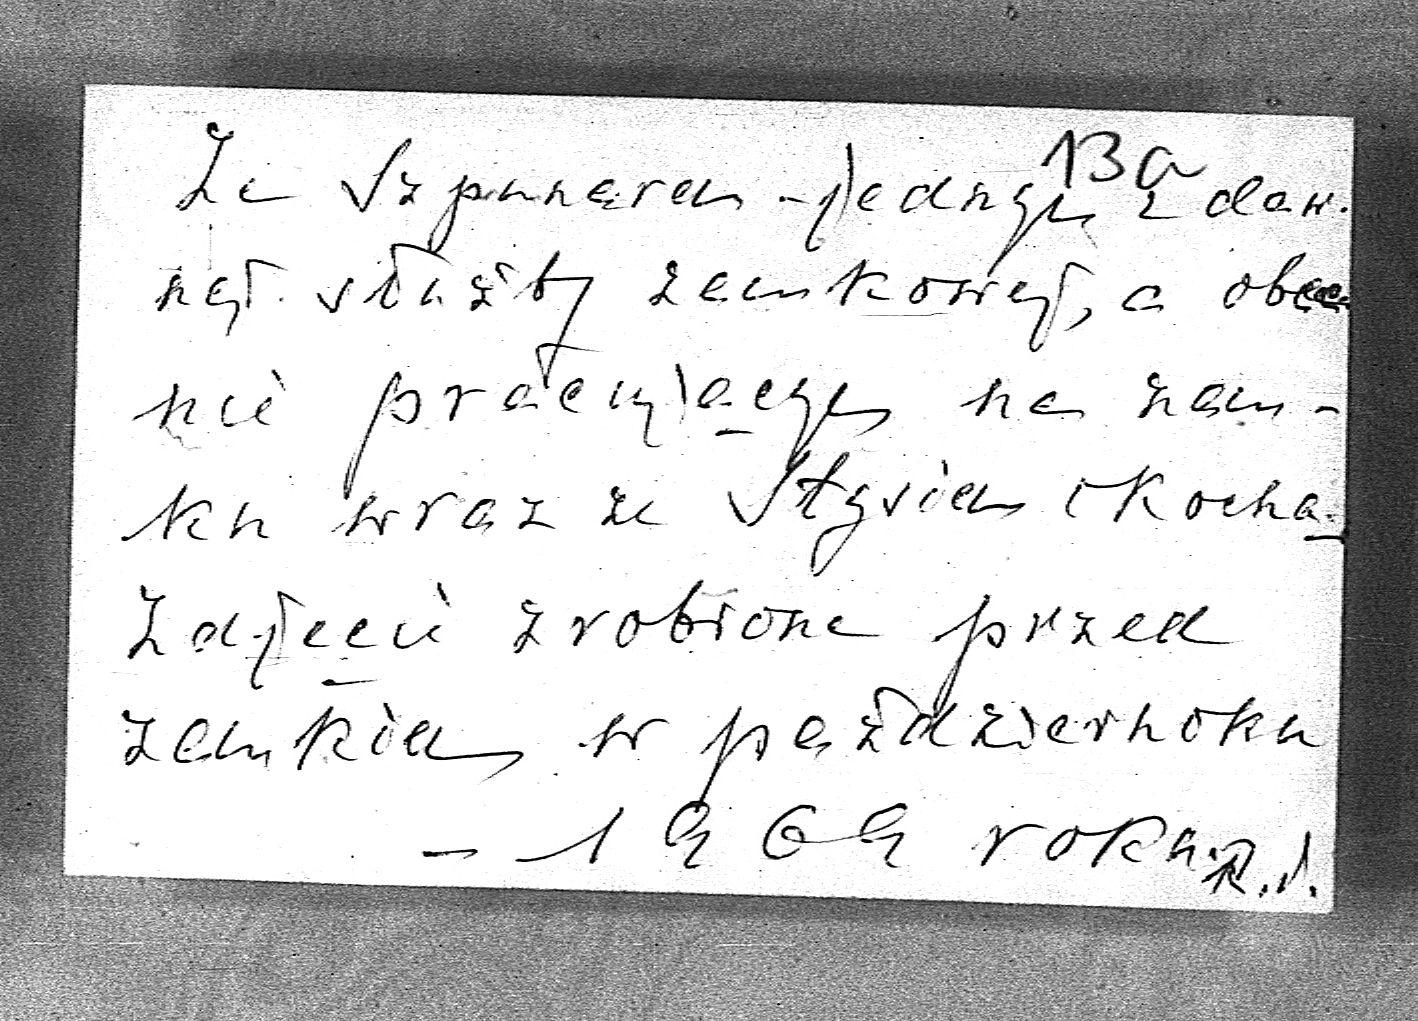 13a
Ze Szpunarem - jednym z daw.
nej służby zamkowej, a obec
nie pracującym na zam-
ku wraz ze Stysiem i Kochą.
Zdjęcie zrobione przed
zamkiem w październiku
- 1969 roku. R.J.